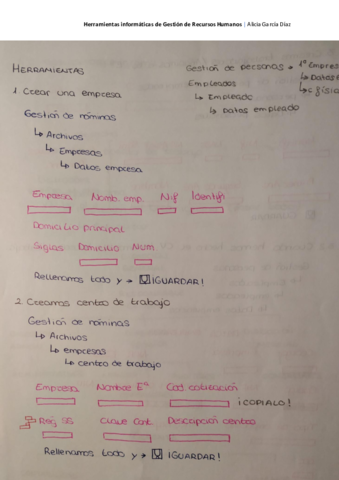 Herramientas informáticas de Gestión de Recursos Humanos | Alicia García Díaz
HERRAMIENTAS
1 Crear una empresa
Gestión de nóminas
↳ Archivos
↳ Empresas
↳ Datos empresa
Gestión de personas → 1º Empres
Empleados ↳ Datos
↳ Empleado
↳ Datos empleado
Empresa Nomb. emp. Nif Identif
Domicilio principal
Siglas Domicilio Num.
Rellenamos todo y → ¡GUARDAR!
2 Creamos centro de trabajo
Gestión de nóminas
↳ Archivos
↳ empresas
↳ centro de trabajo
Empresa Nombre Eª Cod cotización
¡COPIALO!
Reg. SS Clave Cont. Descripción centro
Rellenamos todo y → ¡GUARDAR!